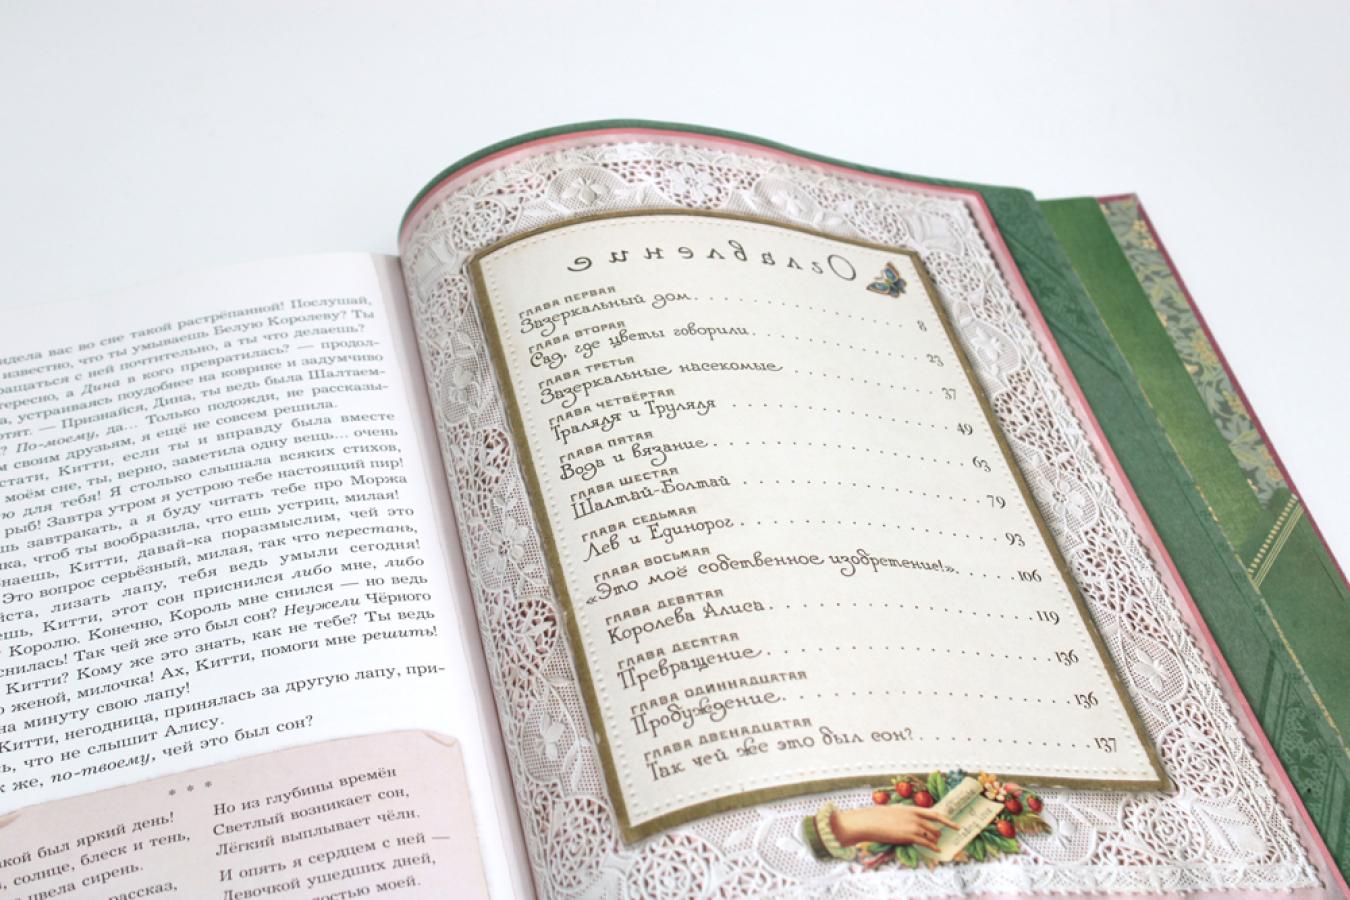 идела вас во сне такой растрёпанной! Послушай,
известно, что ты умываешь Белую Королеву? Ты
ращаться с ней почтительно, а ты что делаешь?
тересно, а Дина в кого превратилась? — продол-
а, устраиваясь поудобнее на коврике и задумчиво
отят. — Признайся, Дина, ты ведь была Шалтаем-
? По-моему, да... Только подожди, не рассказы-
м своим друзьям, я ещё не совсем решила.
стати, Китти, если ты и вправду была вместе
моём сне, ты, верно, заметила одну вещь... очень
ю для тебя! Я столько слышала всяких стихов,
рыб! Завтра утром я устрою тебе настоящий пир!
шь завтракать, а я буду читать тебе про Моржа
ика, чтоб ты вообразила, что ешь устриц, милая!
наешь, Китти, давай-ка поразмыслим, чей это
Это вопрос серьёзный, милая, так что перестань,
йста, лизать лапу, тебя ведь умыли сегодня!
ешь, Китти, этот сон приснился либо мне, либо
Королю. Конечно, Король мне снился — но ведь
снилась! Так чей же это был сон? Неужели Чёрного
Китти? Кому же это знать, как не тебе? Ты ведь
о женой, милочка! Ах, Китти, помоги мне решить!
на минуту свою лапу!
Китти, негодница, принялась за другую лапу, при-
ь, что не слышит Алису.
к же, по-твоему, чей это был сон?
* * *
акой был яркий день!
, солнце, блеск и тень,
цвела сирень.
рассказ,
Но из глубины времён
Светлый возникает сон,
Лёгкий выплывает чёлн.
И опять я сердцем с ней —
Девочкой ушедших дней,
достью моей.
Оглавление
ГЛАВА ПЕРВАЯ
Зазеркальный дом. . . . . . . . . . . . . . . . . 8
ГЛАВА ВТОРАЯ
Сад, где цветы говорили. . . . . . . . . . . . . . 23
ГЛАВА ТРЕТЬЯ
Зазеркальные насекомые . . . . . . . . . . . . . 37
ГЛАВА ЧЕТВЁРТАЯ
Траляля и Труляля . . . . . . . . . . . . . . . . 49
ГЛАВА ПЯТАЯ
Вода и вязание. . . . . . . . . . . . . . . . . . 63
ГЛАВА ШЕСТАЯ
Шалтай-Болтай . . . . . . . . . . . . . . . . . . 79
ГЛАВА СЕДЬМАЯ
Лев и Единорог . . . . . . . . . . . . . . . . . 93
ГЛАВА ВОСЬМАЯ
«Это моё собственное изобретение!». . . . . . 106
ГЛАВА ДЕВЯТАЯ
Королева Алиса. . . . . . . . . . . . . . . . . . 119
ГЛАВА ДЕСЯТАЯ
Превращение. . . . . . . . . . . . . . . . . . . 136
ГЛАВА ОДИННАДЦАТАЯ
Пробуждение. . . . . . . . . . . . . . . . . . . 136
ГЛАВА ДВЕНАДЦАТАЯ
Так чей же это был сон? . . . . . . . . . . . . 137